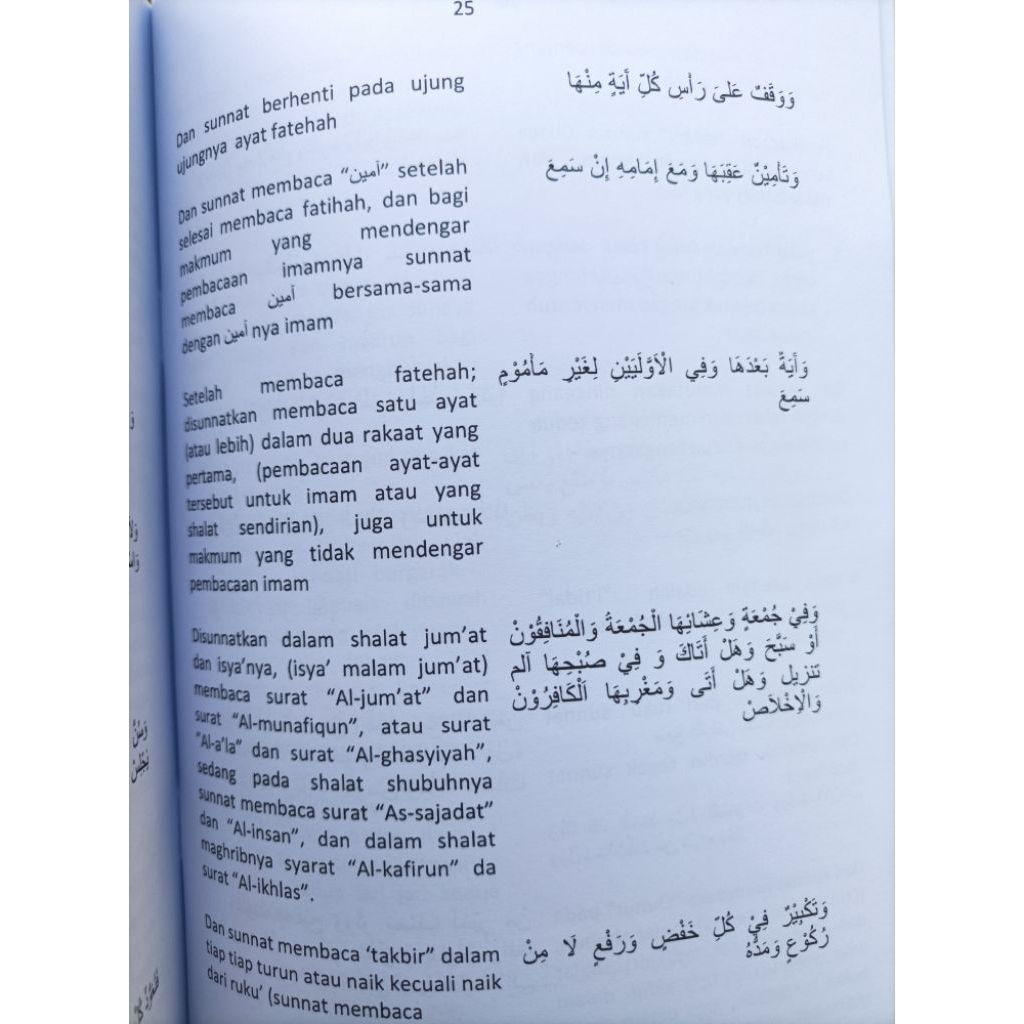 25
Dan sunnat berhenti pada ujung
ujungnya ayat fatehah
وَوَقَفٌ عَلىَ رَأسِ كُلِّ أيَةٍ مِنْهَا
Dan sunnat membaca “آمين” setelah
selesai membaca fatihah, dan bagi
makmum yang mendengar
pembacaan imamnya sunnat
membaca آمين bersama-sama
dengan آمين nya imam
وَتَأمِيْنٌ عَقِبَهَا وَمَعَ إِمَامِهِ إِنْ سَمِعَ
Setelah membaca fatehah;
disunnatkan membaca satu ayat
(atau lebih) dalam dua rakaat yang
pertama, (pembacaan ayat-ayat
tersebut untuk imam atau yang
shalat sendirian), juga untuk
makmum yang tidak mendengar
pembacaan imam
وَأيَةٌ بَعْدَهَا وَفِي الْاَوَّلَيَيْنِ لِغَيْرِ مَأمُوْمٍ
سَمِعَ
Disunnatkan dalam shalat jum’at
dan isya’nya, (isya’ malam jum’at)
membaca surat “Al-jum’at” dan
surat “Al-munafiqun”, atau surat
“Al-a’la” dan surat “Al-ghasyiyah”,
sedang pada shalat shubuhnya
sunnat membaca surat “As-sajadat”
dan “Al-insan”, dan dalam shalat
maghribnya syarat “Al-kafirun” da
surat “Al-ikhlas”.
وَفِيْ جُمْعَةٍ وَعِشَائِهَا الْجُمْعَةُ وَالْمُنَافِقُوْنْ
أَوْ سَبَّحَ وَهَلْ أَتَاكَ وَ فِيْ صُبْحِهَا اَلم
تنزيل وَهَلْ أَتَى وَمَغْرِبِهَا اَلْكَافِرُوْنْ
وَالْاِخْلَاصْ
Dan sunnat membaca ‘takbir” dalam
tiap tiap turun atau naik kecuali naik
dari ruku’ (sunnat membaca
وَتَكْبِيْرٌ فِيْ كُلِّ خَفْضٍ وَرَفْعٍ لَا مِنْ
رُكُوْعٍ وَمَدُّهُ